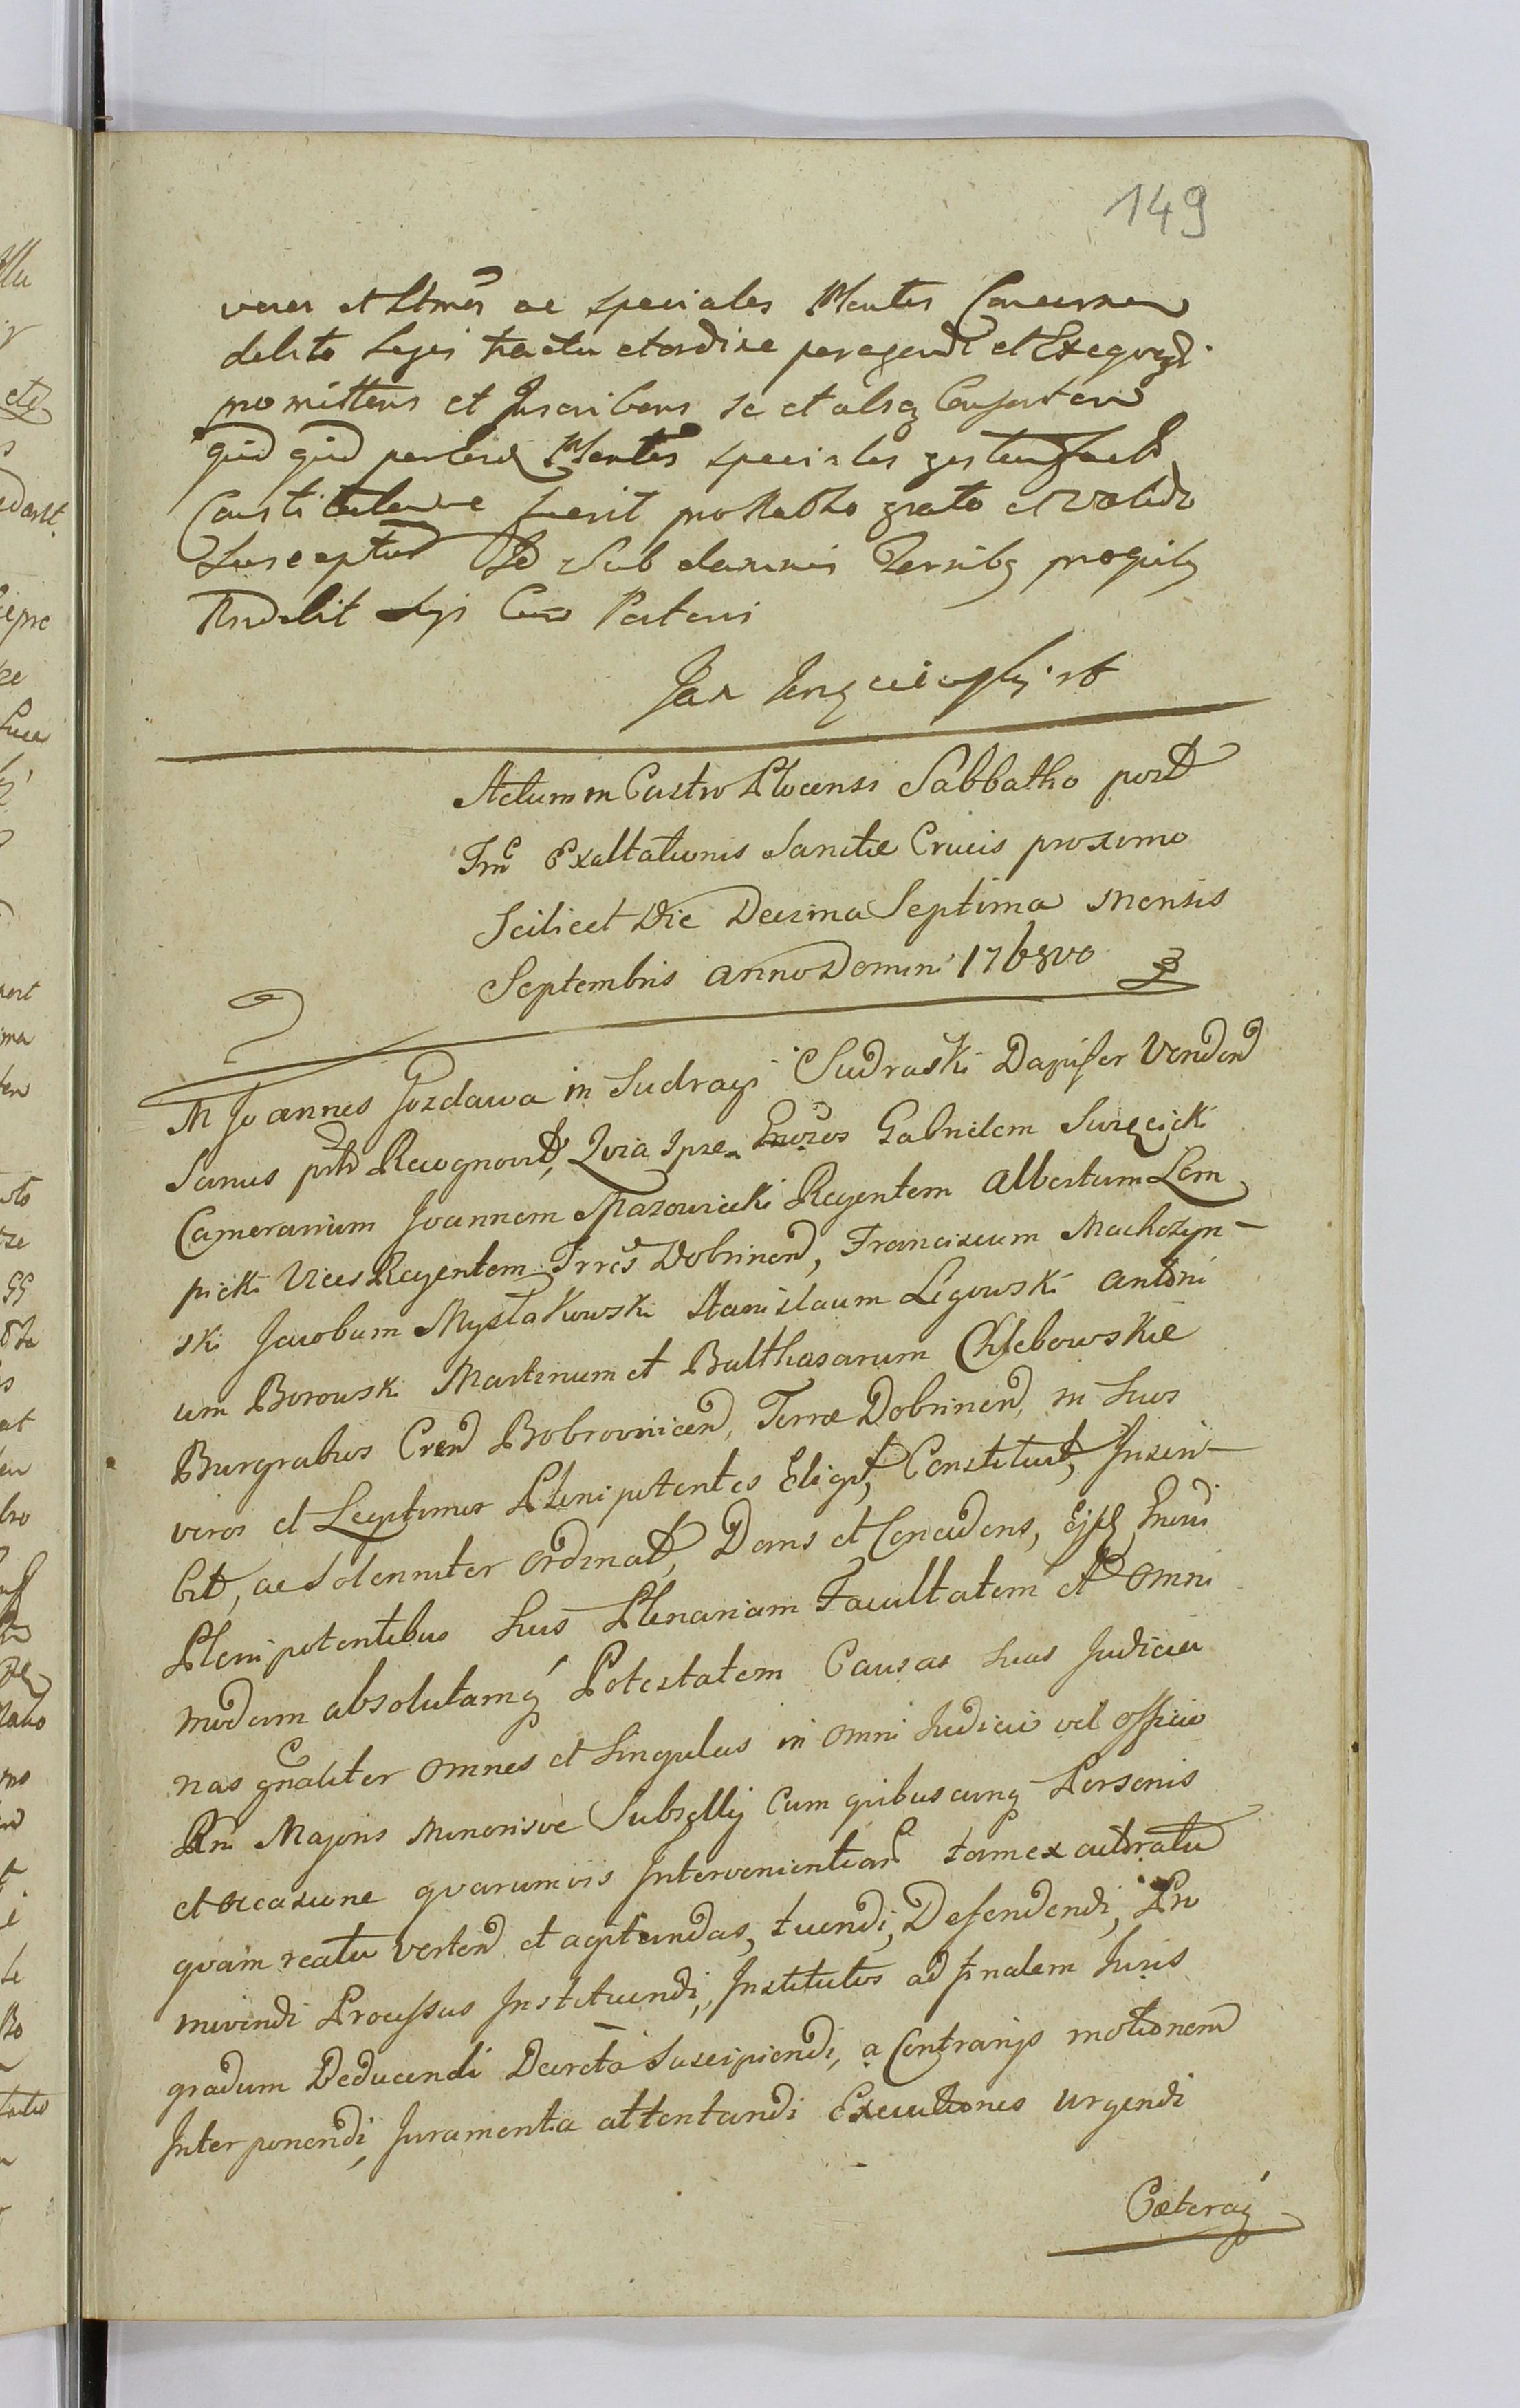 149
veros et Ltmos ac speciales Mentes Concernen
debito Legis tractu et ordine peragendi et Exeqvendi
promittens et Inscribens se et alsq Consorten
quid quid per eosd Mentes speciales gestum factu
Constitutumve fuerit pro Ratho grato et valido
suscepturu Se sub damnis Terribq
Actum in Castro Plocensi Sabbatho post
Fm Exaltationis Sanctæ Crucis proximo
Scilicet Die Decima Septima Mensis
Septembris Anno Domini 1768vo
M Joannes Gozdawa in Sudragi Sudraski Dapifer Venden
Sanus pth Recognovit, Qvia Ipse Gnosos Gabrielem Swięcicki
Camerarium Joannem Mazowiecki Regentem Albertum Lem
picki Vices Regentem Trrес Dobrinen, Franciscum Machczyn-
ski Jacobum Mysłakowski Stanislaum Łęgowski Antoni
um Borowski Martinum et Balthasarum Chlebowskie
Burgrabios Cren Bobrovnicen, Terræ Dobrinen, in suos
veros et Legitimos Plenipotentes Eligit, Constituit, Inscri-
bit, ac Solenniter Ordinat, Dans et Concedens, Ejsd
Plenipotentibus Suis Plenariam Facultatem et Omni
modam absolutamq Potestatem Causas suas Judicia
nas gnaliter Omnes et Singulas in Omni Judicio vel Officio
Rni Majoris Minorisve Subsellij Cum qvibuscunq Personis
et occasione qvarumvis Intervenientian tam ex actoratu
qvam reatu verten et agitandas, tuendi, Defendendi, Pro
movendi Processus Instituendi, Institutos ad finalem Juris
gradum Deducendi Decreta Suscipiendi, a Contrarijs motionem
Interponendi, Juramenta attentandi Executiones Urgendi
Cæteraq